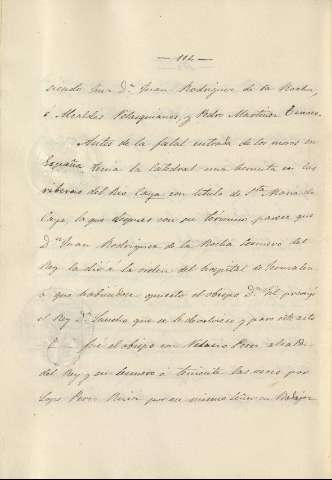 — 112. —
siendo Juez D.ⁿ Juan Rodriguez de la Rocha,
ó Alcaldes Velasquianes, y Pedro Martinez
Antes de la fatal entrada de los moros en
España tenia la Catedral una hermita en las
riberas del Rio Caya con titulo de S.ta Maria de
Caya, la que despues con su término parece que
D.ⁿ Juan Rodriguez de la Rocha tesorero del
Rey la dió á la orden del hospital de Jerusalen
ó que habiendose opuesto el obispo D.ⁿ Gil
el Rey D.ⁿ Sancho que se le devolviese y para este acto
fué el obispo con Velasco Perez alcalde
del Rey y su tesorero ó teniente las veces por
Lope Perez por su mismo Señor en Badajoz